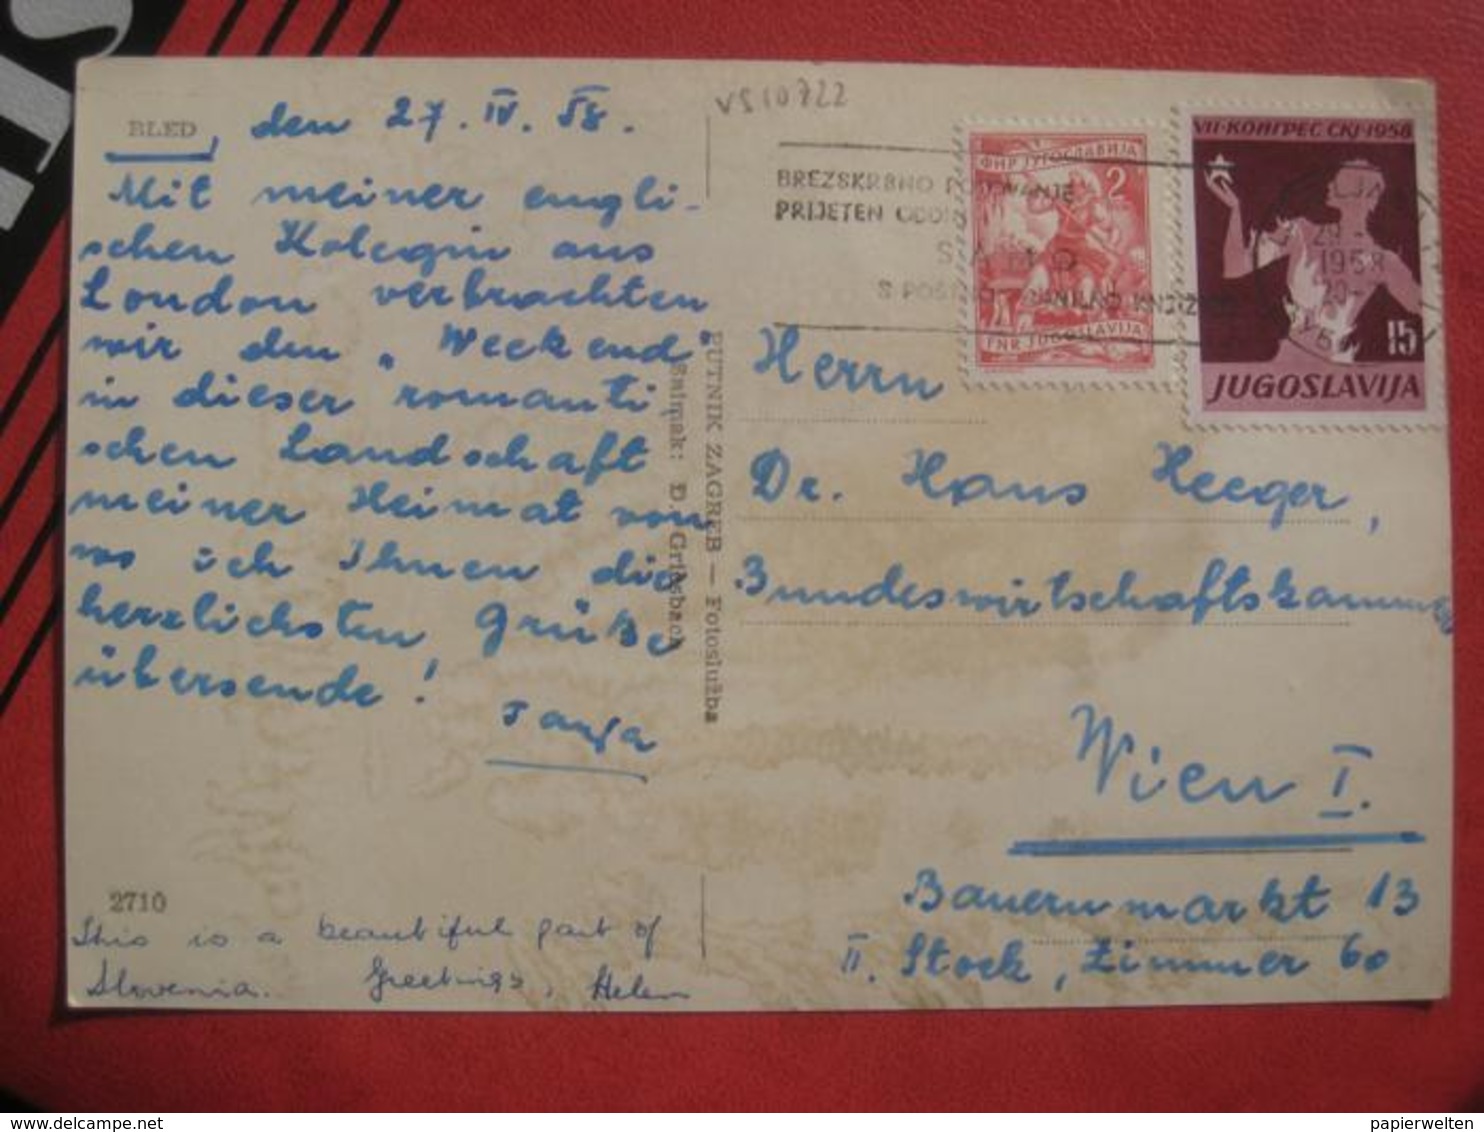 VS10722
BLED, den 27. IV. 58.
Mit meiner engli-
schen Kolegin aus
London verbrachten
wir den „Weekend"
in dieser romanti
schen Landschaft
meiner Heimat von
wo ich Ihnen die
herzlichsten Grüße
übersende!
Tanja
2710
This is a beautiful part of
Slovenia. Greetings, Helen
PUTNIK ZAGREB — Fotoslužba
Snimak: D. Griesbach
BREZSKRBNO
PRIJETEN
SAMO
S
ФНР ЈУГОСЛАВИЈА
2
FNR JUGOSLAVIJA
VII·КОНГРЕС СКЈ·1958
15
JUGOSLAVIJA
1958
Herrn
Dr. Hans Heeger,
Bundeswirtschaftskammer
Wien I.
Bauernmarkt 13
II. Stock, Zimmer 60
delcampe.net
papierwelten